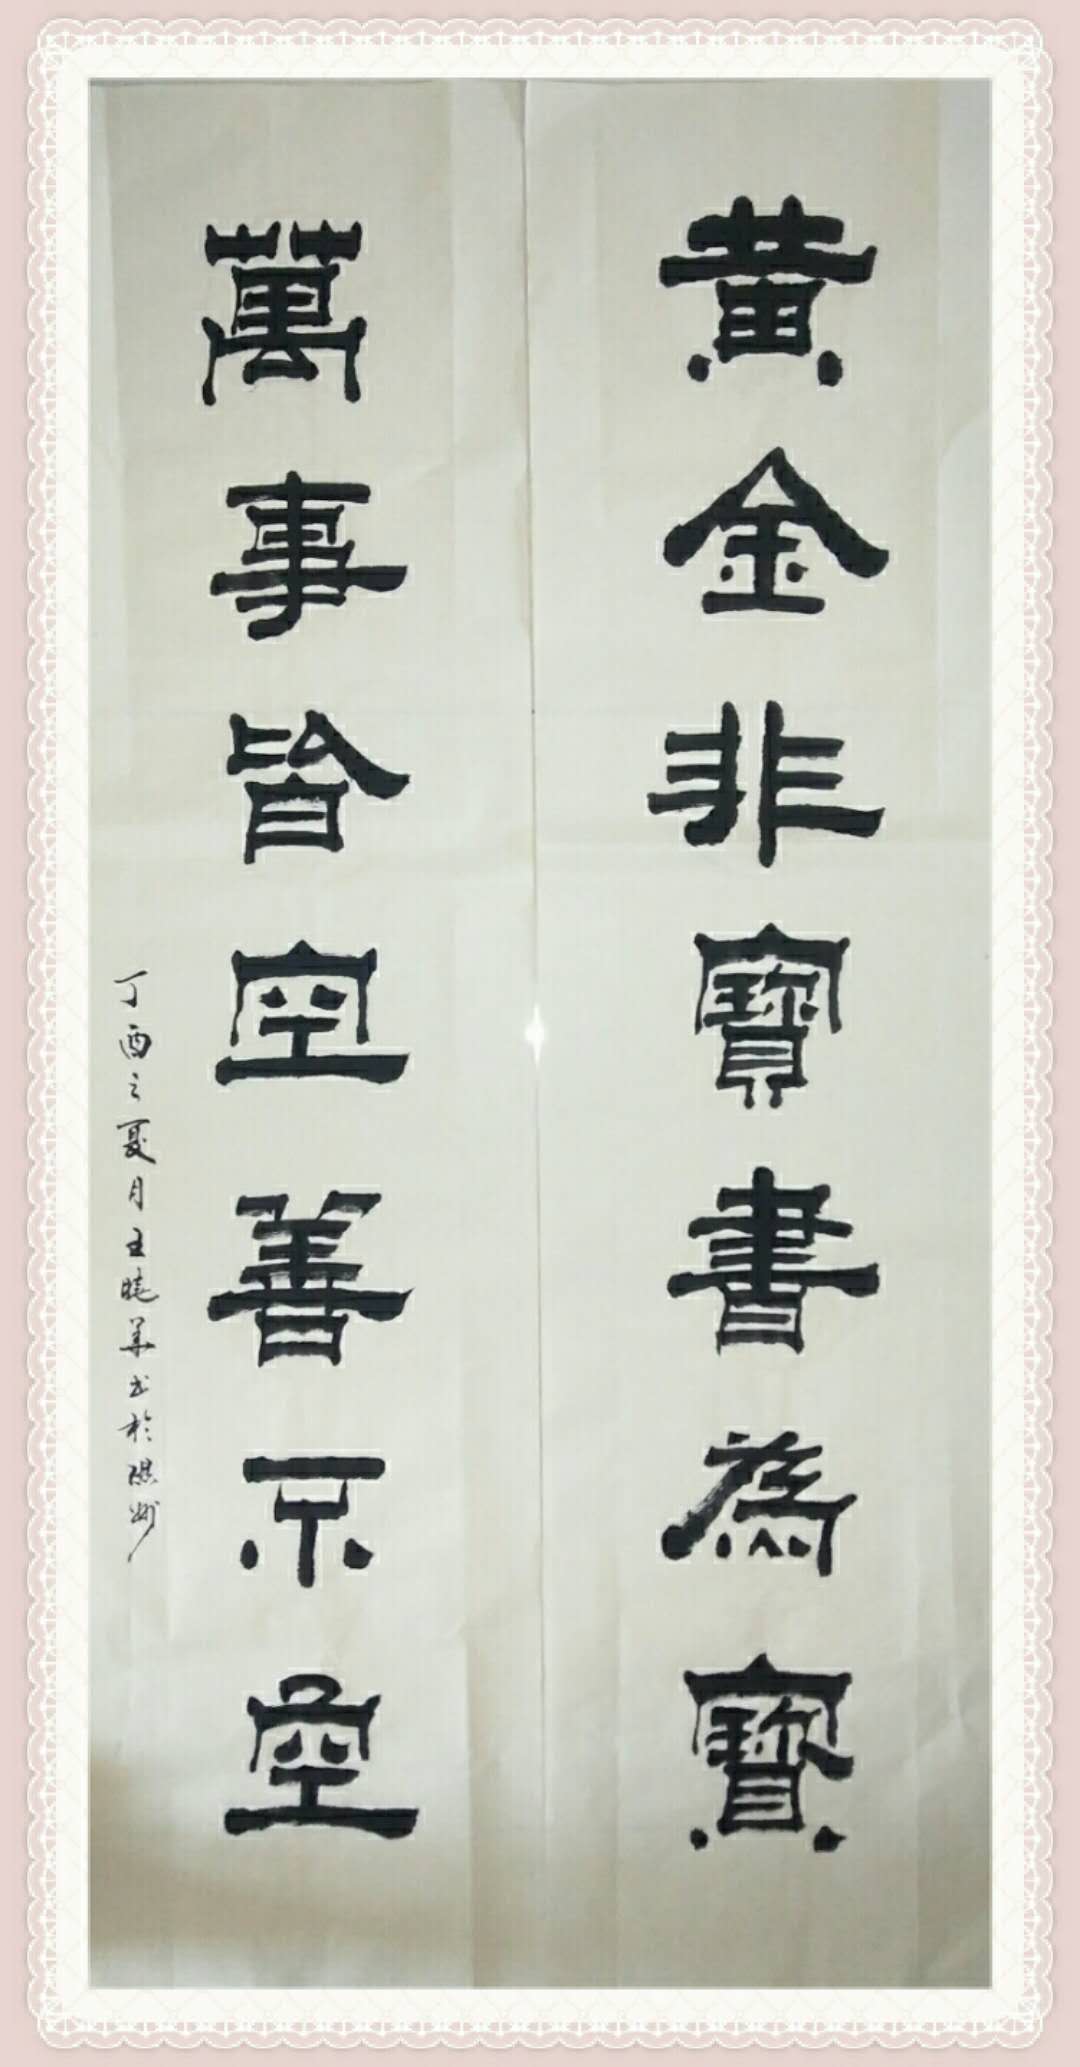 黄金非寶書為寶
萬事皆空善不空
丁酉之夏月王曉華书於琪州